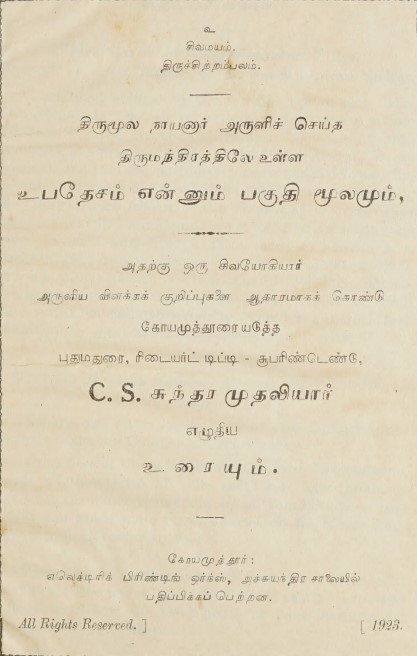 உ
சிவமயம்.
திருச்சிற்றம்பலம்.
திருமூல நாயனார் அருளிச் செய்த
திருமந்திரத்திலே உள்ள
உபதேசம் என்னும் பகுதி மூலமும்,
அதற்கு ஒரு சிவயோகியார்
அருளிய விளக்கக் குறிப்புகளை ஆதாரமாகக் கொண்டு
கோயமுத்தூரையடுத்த
புதுமதுரை, ரிடையர்ட் டிப்டி - சூபரிண்டெண்டு,
C. S. சுந்தர முதலியார்
எழுதிய
உரையும்.
கோயமுத்தூர் :
எலெக்டிரிக் பிரிண்டிங் ஒர்க்ஸ், அச்சுயந்திர சாலையில்
பதிப்பிக்கப் பெற்றன.
All Rights Reserved. ] [ 1923.